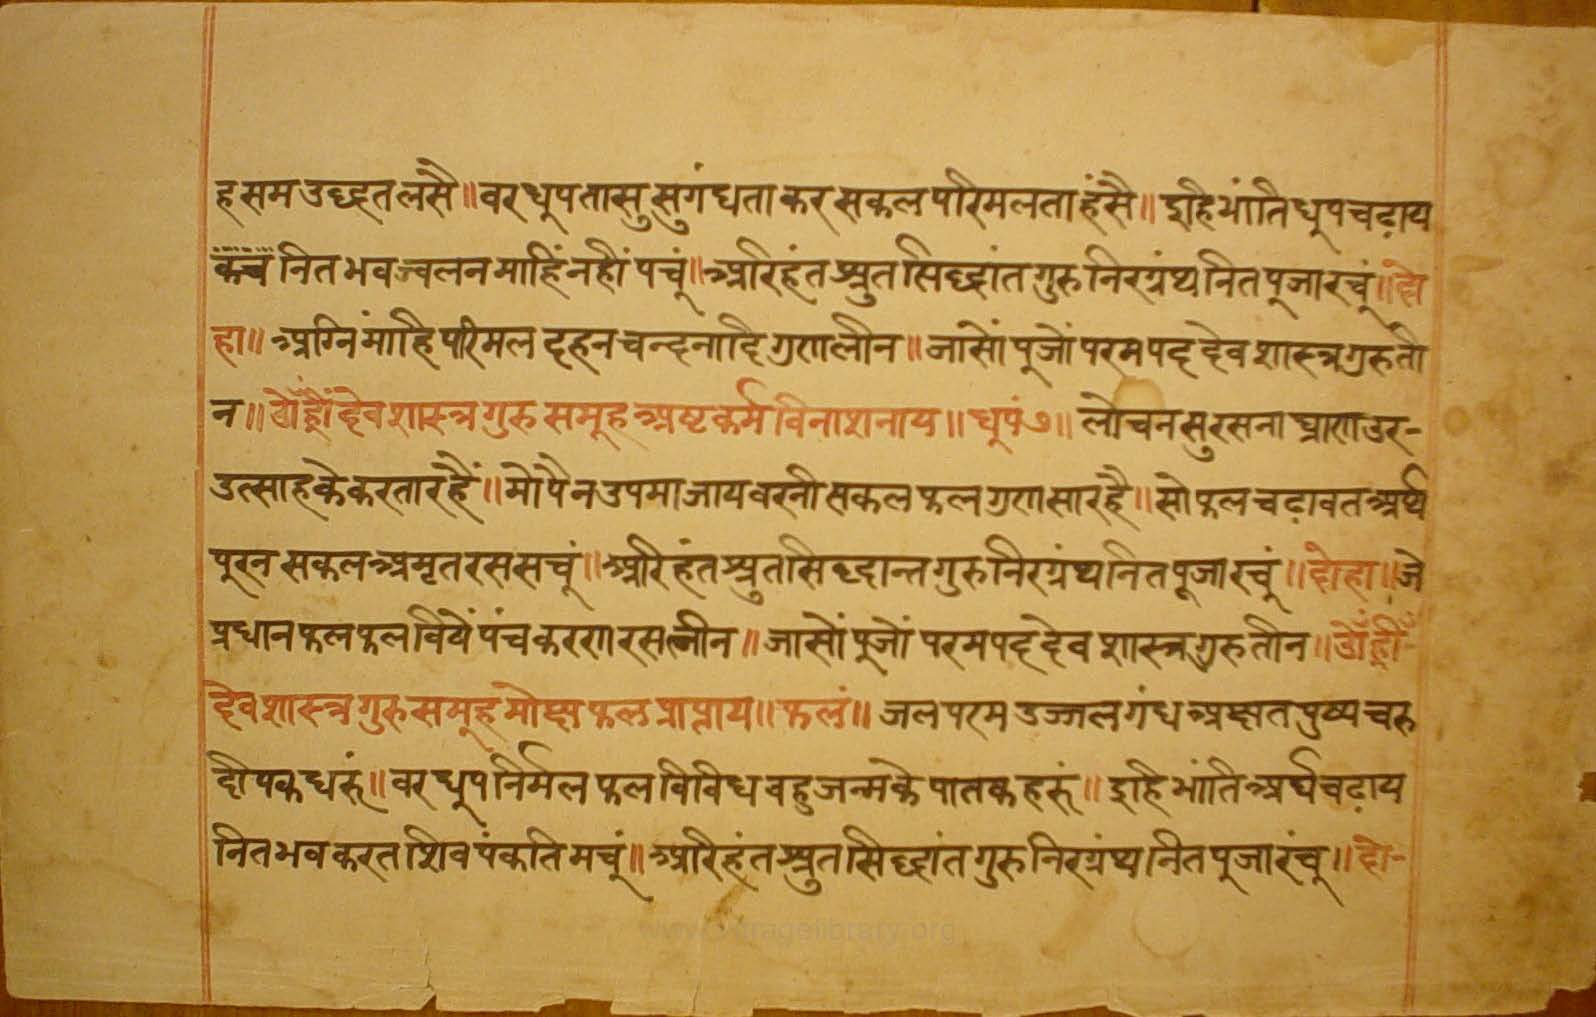 ह सम उद्धत लसै॥ वर धुप तासु सुगंधता कर सकल परिमलता हंसै॥ इहि भांति धुप चढ़ाय
नित भव ज्वलन माहिं नहीं पचूं॥ अरिहंत श्रुत सिद्धांत गुरु निरग्रंथ नित पुजा रचूं॥ दो
हा॥ अग्नि मांहि परिमल दहन चन्दनादि गुण लीन॥ जासों पुजों परम पद देव शास्त्र गुरु ती
न॥ ओं ह्रीं देव शास्त्र गुरु समूह अष्ट कर्म विनाशनाय॥ धुपं ७॥ लोचन सुरसना घ्राण उर-
उत्साह के करतार हैं॥ मोपै न उपमा जाय वरनी सकल फल गुण सार है॥ सो फल चढ़ावत अर्थ
पुरन सकल अमृत रस सचूं॥ अरिहंत श्रुत सिद्धान्त गुरु निरग्रंथ नित पूजा रचूं॥ दोहा॥ जे
प्रधान फल फल विषें पंच करण रस लीन॥ जासों पुजों परम पद देव शास्त्र गुरु तीन॥ ओं ह्रीं
देव शास्त्र गुरु समूह मोक्ष फल प्राप्ताय॥ फलं॥ जल परम उज्जल गंध अक्षत पुष्प चरु
दीपक धरूं॥ वर धुप निर्मल फल विविध वहु जन्म के पातक हरूं॥ इहि भांति अर्घ चढ़ाय
नित भव करत शिव पंकति मचूं॥ अरिहंत श्रुत सिद्धांत गुरु निरग्रंथ नित पुजा रंचू॥ दो-